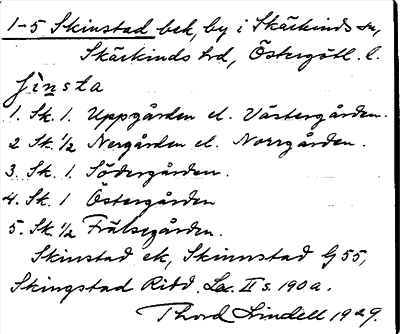 1-5 Skinstad bek, by i Skärkinds sn,
Skärkinds hd, Östergötl. l.
ʃinsta
1. Sk. 1. Uppgården el. Västergården.
2 Sk. 1/2 Nergården el. Norrgården.
3. Sk. 1. Södergården.
4. Sk. 1 Östergården
5. Sk. 1/2 Frälsegården.
Skinstad ek, Skinnstad G55,
Skingstad Ritd. Lex. II s. 190a.
Thord Lindell 1929.